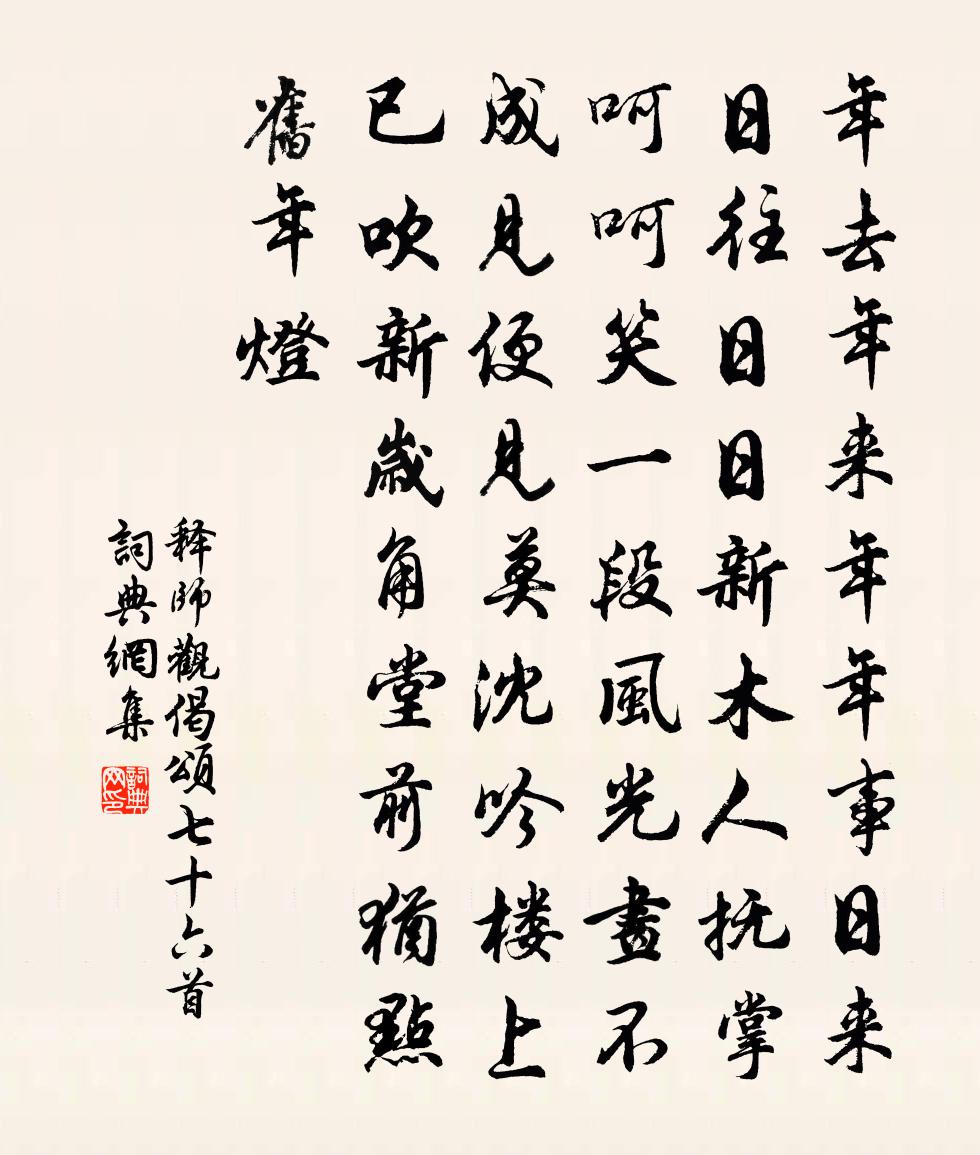 年去年来年年事日来
日往日日新木人抚掌
呵呵笑一段風光畫不
成見便見莫沈吟楼上
已吹新歲角堂前猶點
舊年燈
释师觀偈頌七十六首
詞典網集
詞典网印